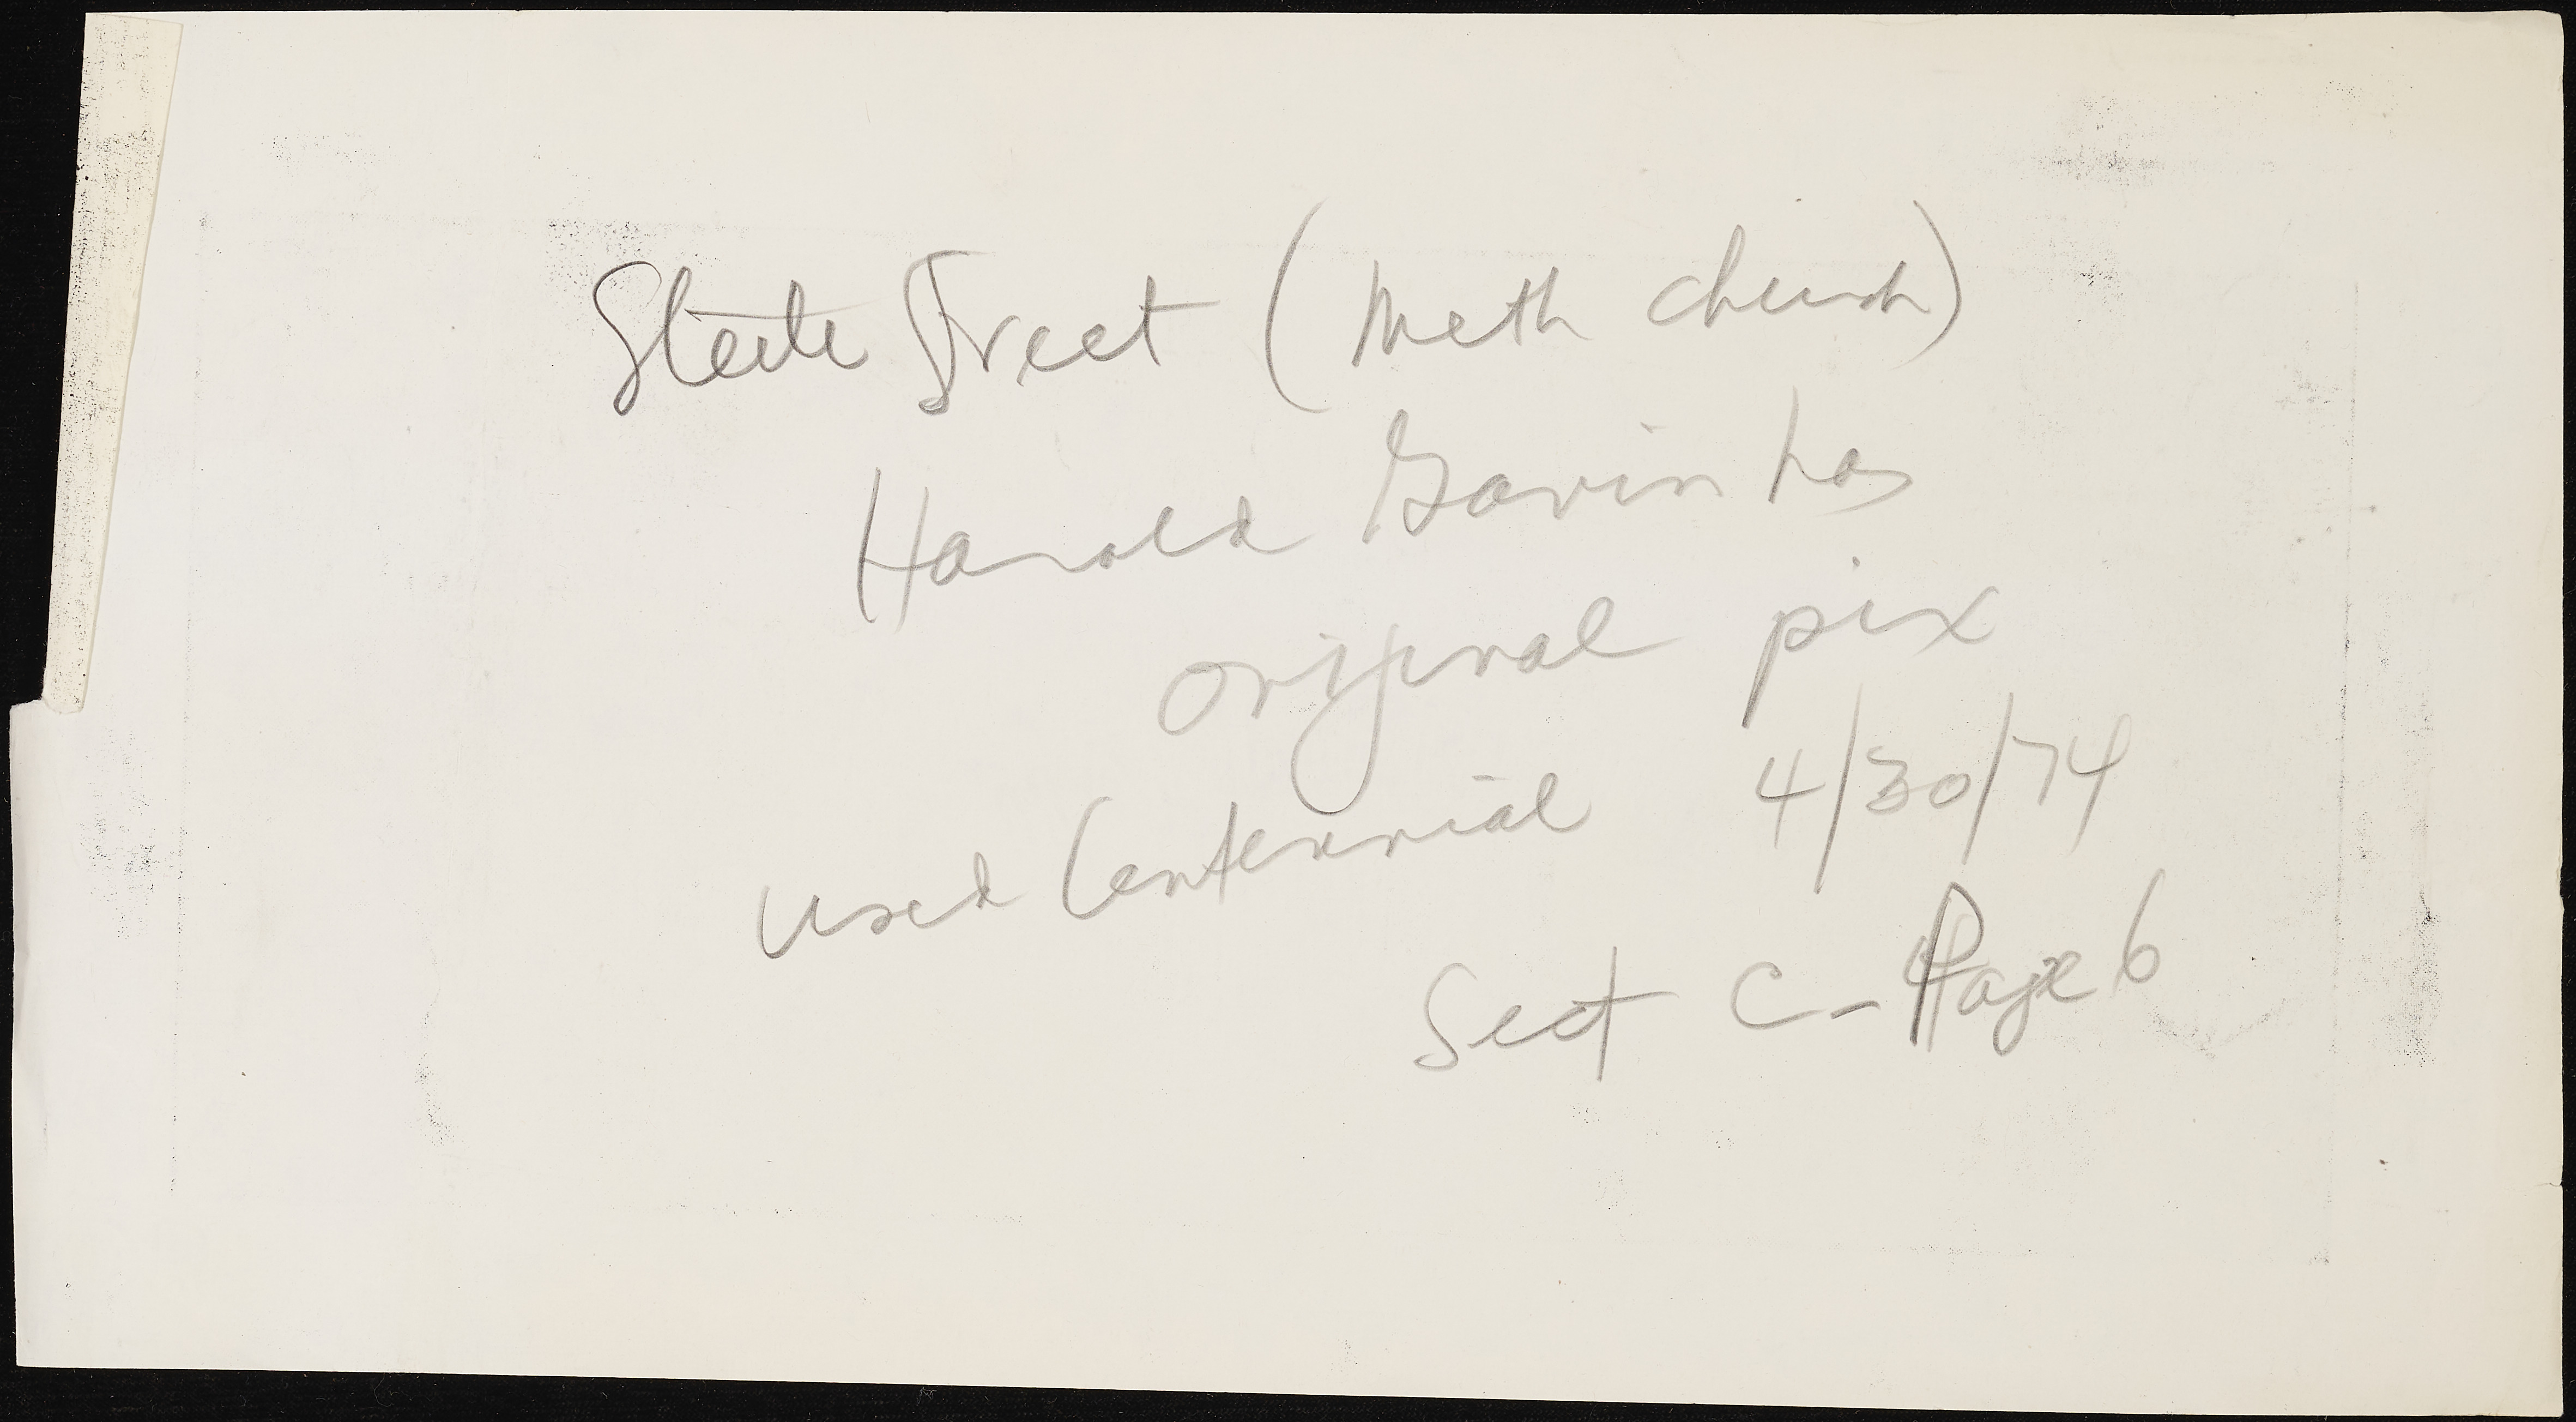 State Street (Meth Church)
Harold Gavin has
original pix
used Centennial 4/30/74
Sect C - Page 6